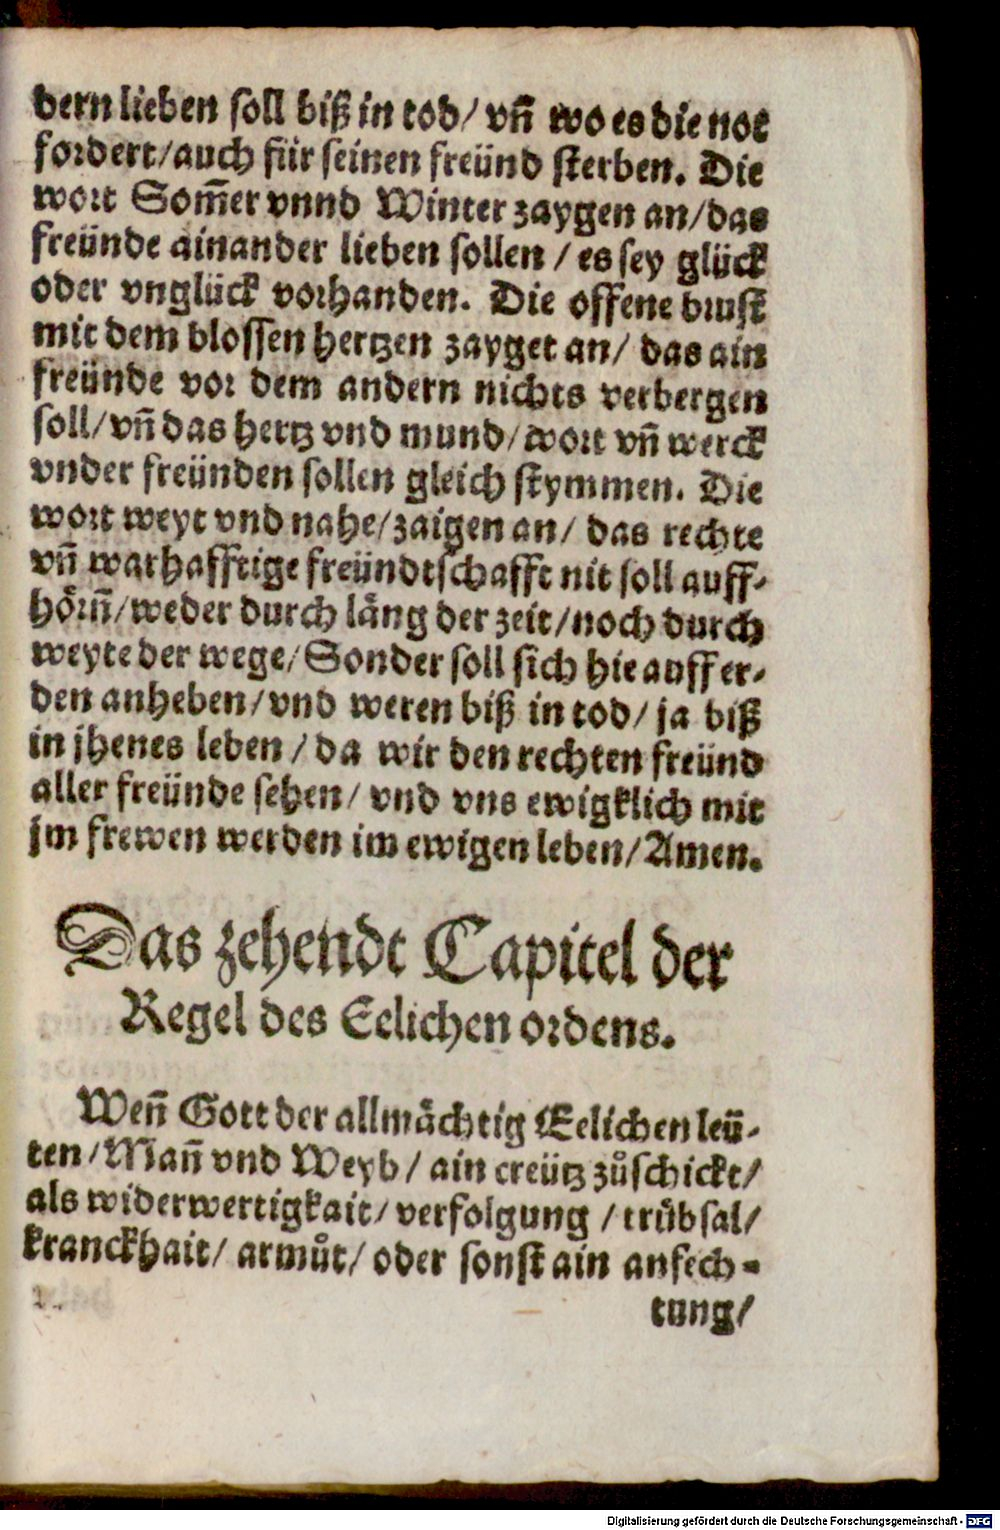 dern lieben soll biß in tod/ vñ wo es die not
fordert/auch für seinen freünd sterben. Die
wort Som̃er vnnd Winter zaygen an/das
freünde ainander lieben sollen / es sey glück
oder vnglück vorhanden. Die offene brust
mit dem blossen hertzen zayget an/ das ain
freünde vor dem andern nichts verbergen
soll/vñ das hertz vnd mund/wort vñ werck
vnder freünden sollen gleich stymmen. Die
wort weyt vnd nahe/zaigen an/ das rechte
vñ warhafftige freündtschafft nit soll auff-
hörñ/weder durch läng der zeit/noch durch
weyte der wege/Sonder soll sich hie auff er-
den anheben/vnd weren biß in tod/ ja biß
in jhenes leben / da wir den rechten freünd
aller freünde sehen/ vnd vns ewigklich mit
jm frewen werden im ewigen leben/Amen.
Das zehendt Capitel der
Regel des Eelichen ordens.
Weñ Gott der allmächtig Eelichen leü-
ten/Mañ vnd Weyb/ ain creütz zůschickt/
als widerwertigkait/ verfolgung / trübsal/
kranckhait/ armůt/ oder sonst ain anfech-
tung/
Digitalisierung gefördert durch die Deutsche Forschungsgemeinschaft - DFG